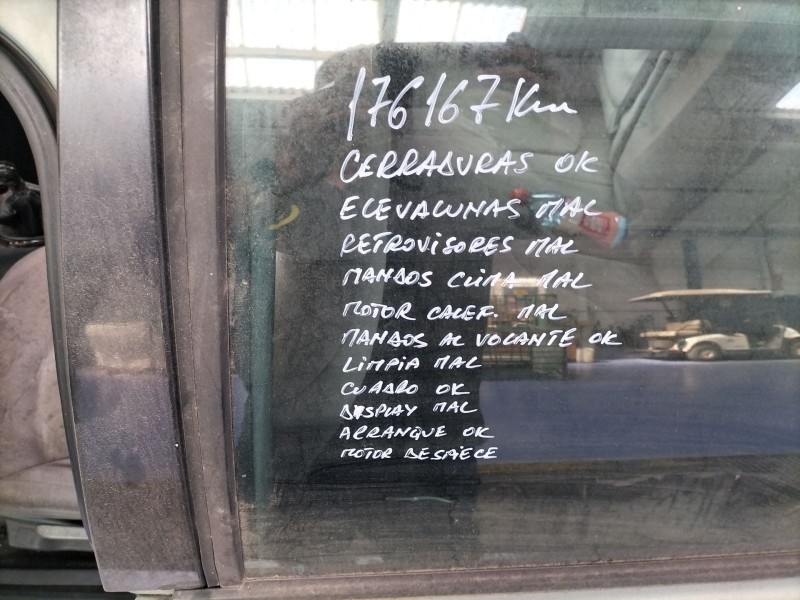 176167 Km
CERRADURAS OK
ELEVALUNAS MAL
RETROVISORES MAL
MANDOS CLIMA MAL
MOTOR CALEF. MAL
MANDOS AL VOLANTE OK
LIMPIA MAL
CUADRO OK
DISPLAY MAL
ARRANQUE OK
MOTOR DESPIECE